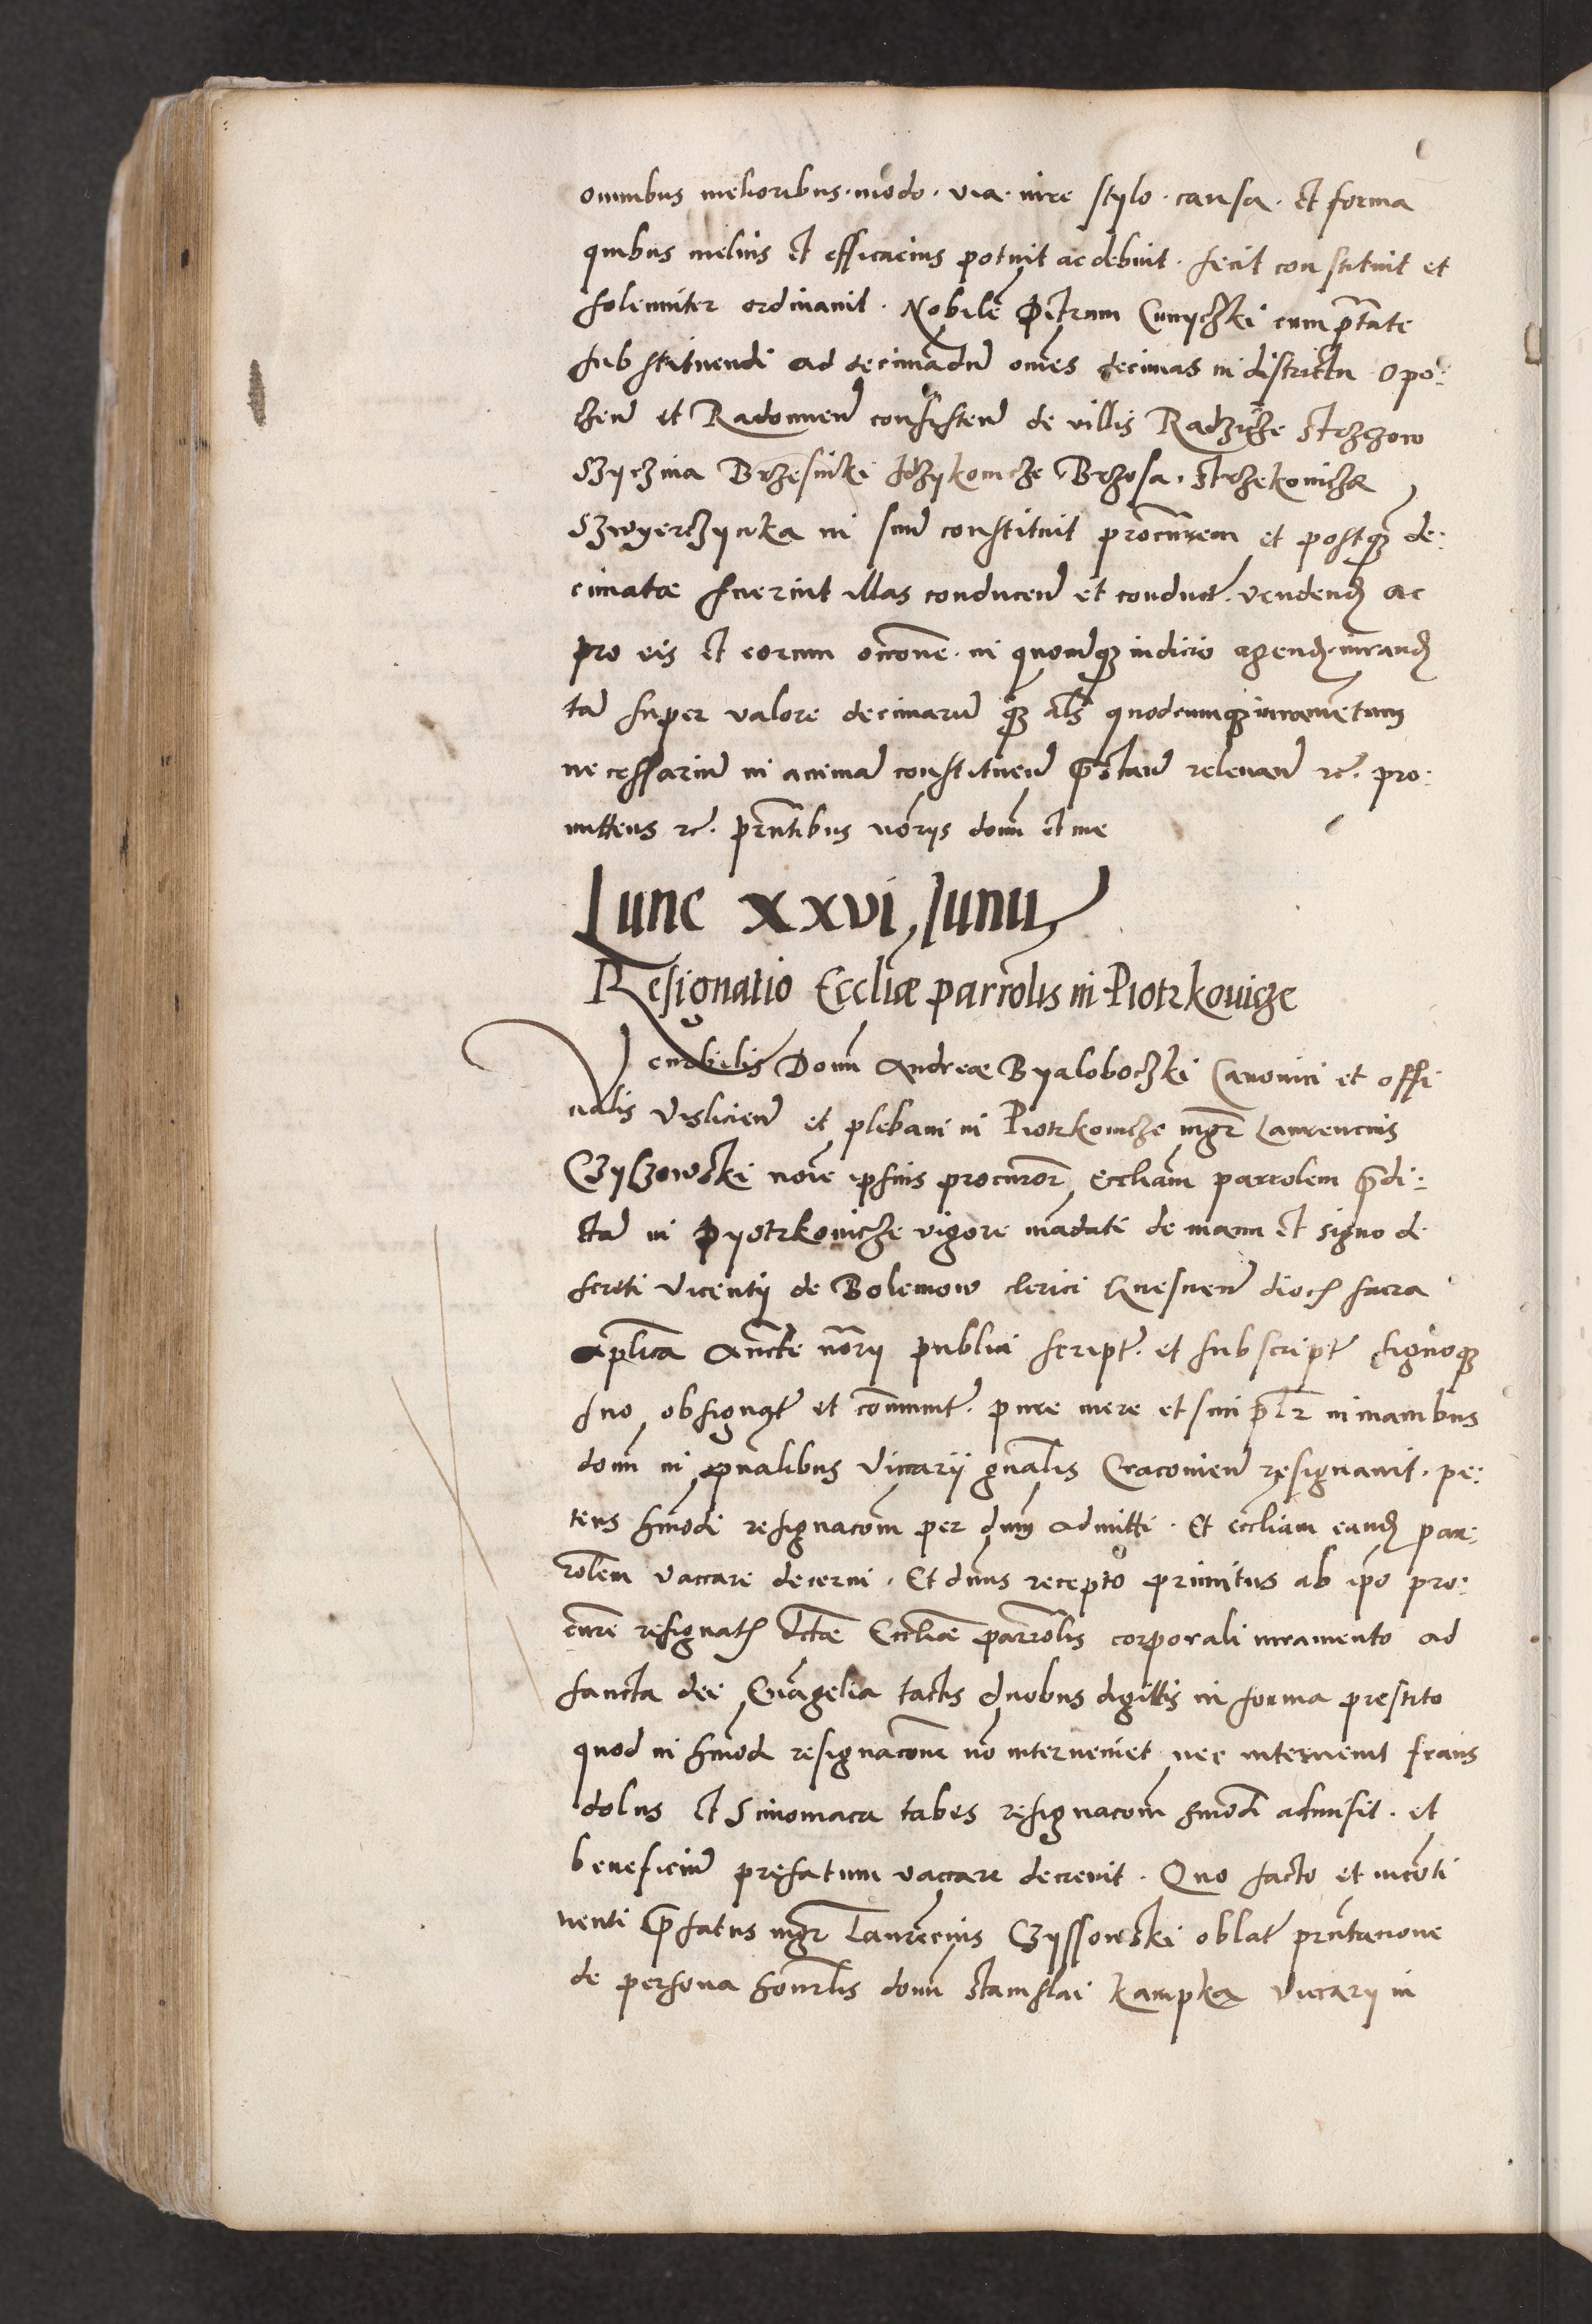 omnibus melioribus · modo · via · iure stylo · causa · et forma
quibus melius et efficacius potuit ac debuit · fecit constituit et
solenniter ordinavit · Nobilē Petrum Cunyczki cum ptāte
substituendi ad decimādū om̄es decimas in districtu Opo:
czeñ et Radomieñ consisteñ de villis Radzicze Strzzow
Szyczina Brzesinki Idzykowicze Brzosa · Strzekowicze
Szwyerczynka in suū constituit procūrem et postq̄ de:
cimatæ fuerint illas conduceñ et conduct̄ · vendend̄ ac
pro eis et eorum occ̄one · in quocūq̄ iudicio agend̄ · iurand̄
tā super valore decimarū q̄ als̄ quodcumq̄ iuramētum
necessariū in animā constitueñ p̄stañ relevañ rc̄ · pro:
mittens rc̄ · prn̄tibus no̅rijs dom̄ et me
Lune xxvi Iunij
Resignatio Eccliæ parrōlis in Piotrkovicze
Venerabilis Dom̄ Andreæ Byaloboczki Canonici et offi
cialis Vislicieñ et plebani in Piotrkowicze mgr̄ Laurencius
Czyszowski noīe ipsius procurōr Eccliam̄ parrolem p̄di:
ctā in Pyotrkowicze vigore mādati de manu et signo di
screti Vicentij de Bolemow clerici Gnesneñ dioc̄ sacra
aplīca auc̄te nōrij publici script̄ · et subscript̄ signoq̄
suo obsignat̄ et com̄unit̄ · pure mere et simpl̄r in manibus
dom̄ in sp̄ualibus Vicarij gn̄alis Cracovieñ resignavit · pe:
tens hm̄odi resignacōm per dn̄m admitti · Et eccliam eand̄ par:
rōlem vaccare decerni · Et dn̄us recepto primitus ab ip̄o pro:
cūre resignat̄ dctæ Eccliæ parrōlis corporali iuramento ad
sancta dei Evāgelia tactis duobus digittis in forma prestito
quod in hm̄odi resignacōne nō interveniet nec intervenit fraus
dolus et Simoniaca tabes resignacōm hm̄odi admisit · et
beneficiū prefatum vaccare decrevit · Quo facto et incōti
nenti p̄fatus mgr̄ Laurēcius Czyssowski oblat̄ prn̄tacione
de persona honrl̄is dom̄ Stanislai Kampka Vicarij in